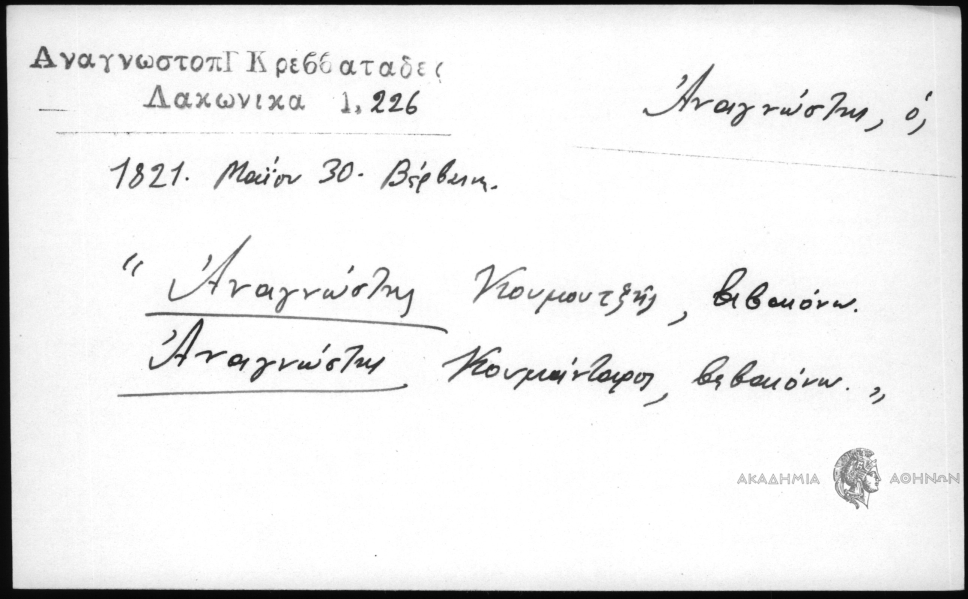 ΑναγνωστοπΓ Κρεββαταδες
Λακωνικα 1, 226
Ἀναγνώστης, ὁ,
1821. Μαΐου 30. Βέρβαινα.
“ Ἀναγνώστης Κουμουτζῆς, βεβαιόνω.
Ἀναγνώστης Κουμάνταρος, βεβαιόνω. „
ΑΚΑΔΗΜΙΑ ΑΘΗΝΩΝ